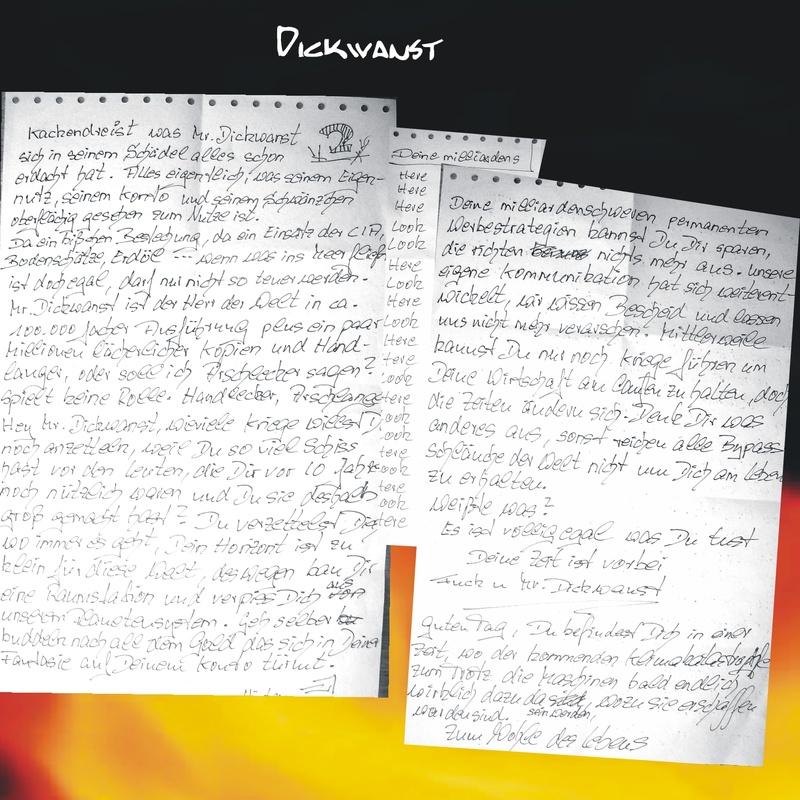 DICKWANST
Kackendreist was Mr. Dickwanst
sich in seinem Schädel alles schon
erdacht hat. Alles eigentlich, was seinem Eigen-
nutz, seinem Konto und seinem Schwänzchen
oberflächig gesehen zum Nutze ist.
Da ein bißchen Bestechung, da ein Einsatz der CIA,
Bodenschätze, Erdöl --- wenn was ins Meer fließt
ist doch egal, darf nur nicht so teuer werden.
Mr. Dickwanst ist der Herr der Welt in ca.
100.000 facher Ausführung plus ein paar
Millionen lächerlicher Kopien und Hand-
langer, oder soll ich Arschlecker sagen?
spielt keine Rolle. Handlecker, Arschlange
Hey Mr. Dickwanst, wieviele Kriege willst D
noch anzetteln, weil Du so viel Schiss
hast vor den Leuten, die Dir vor 10 Jahr
noch nützlich waren und Du sie deshalb
groß gemacht hast? Du verzettelst Dich
wo immer es geht, Dein Horizont ist zu
klein für diese Welt, deswegen bau Dir
eine Raumstation und verpiss Dich aus
unserem Planetensystem. Geh selber
buddeln nach all dem Gold das sich in Deiner
Fantasie auf Deinem Konto türmt.
Deine milliardens
Here
Here
Here
Look
Look
Here
Look
Here
Look
Here
Here
Look
Here
Look
Look
Here
Look
Here
Look
Here
Deine milliardenschweren permanenten
Werbestrategien kannst Du Dir sparen,
die richten nichts mehr aus. Unsere
eigene Kommunikation hat sich weiterent-
wickelt, wir wissen Bescheid und lassen
uns nicht mehr verarschen. Mittlerweile
kannst Du nur noch Kriege führen um
Deine Wirtschaft am Laufen zu halten, doch
die Zeiten ändern sich. Denk Dir was
anderes aus, sonst reichen alle Bypass
schläuche der Welt nicht um Dich am Leben
zu erhalten.
Weißte was?
Es ist völlig egal was Du tust
Deine Zeit ist vorbei
Fuck u Mr. Dickwanst
Guten Tag, Du befindest Dich in einer
Zeit, wo der kommenden Klimakatastrophe
zum Trotz die Maschinen bald endlich
wirklich dazu da sein werden, wozu sie erschaffen
worden sind.
Zum Wohle des Lebens